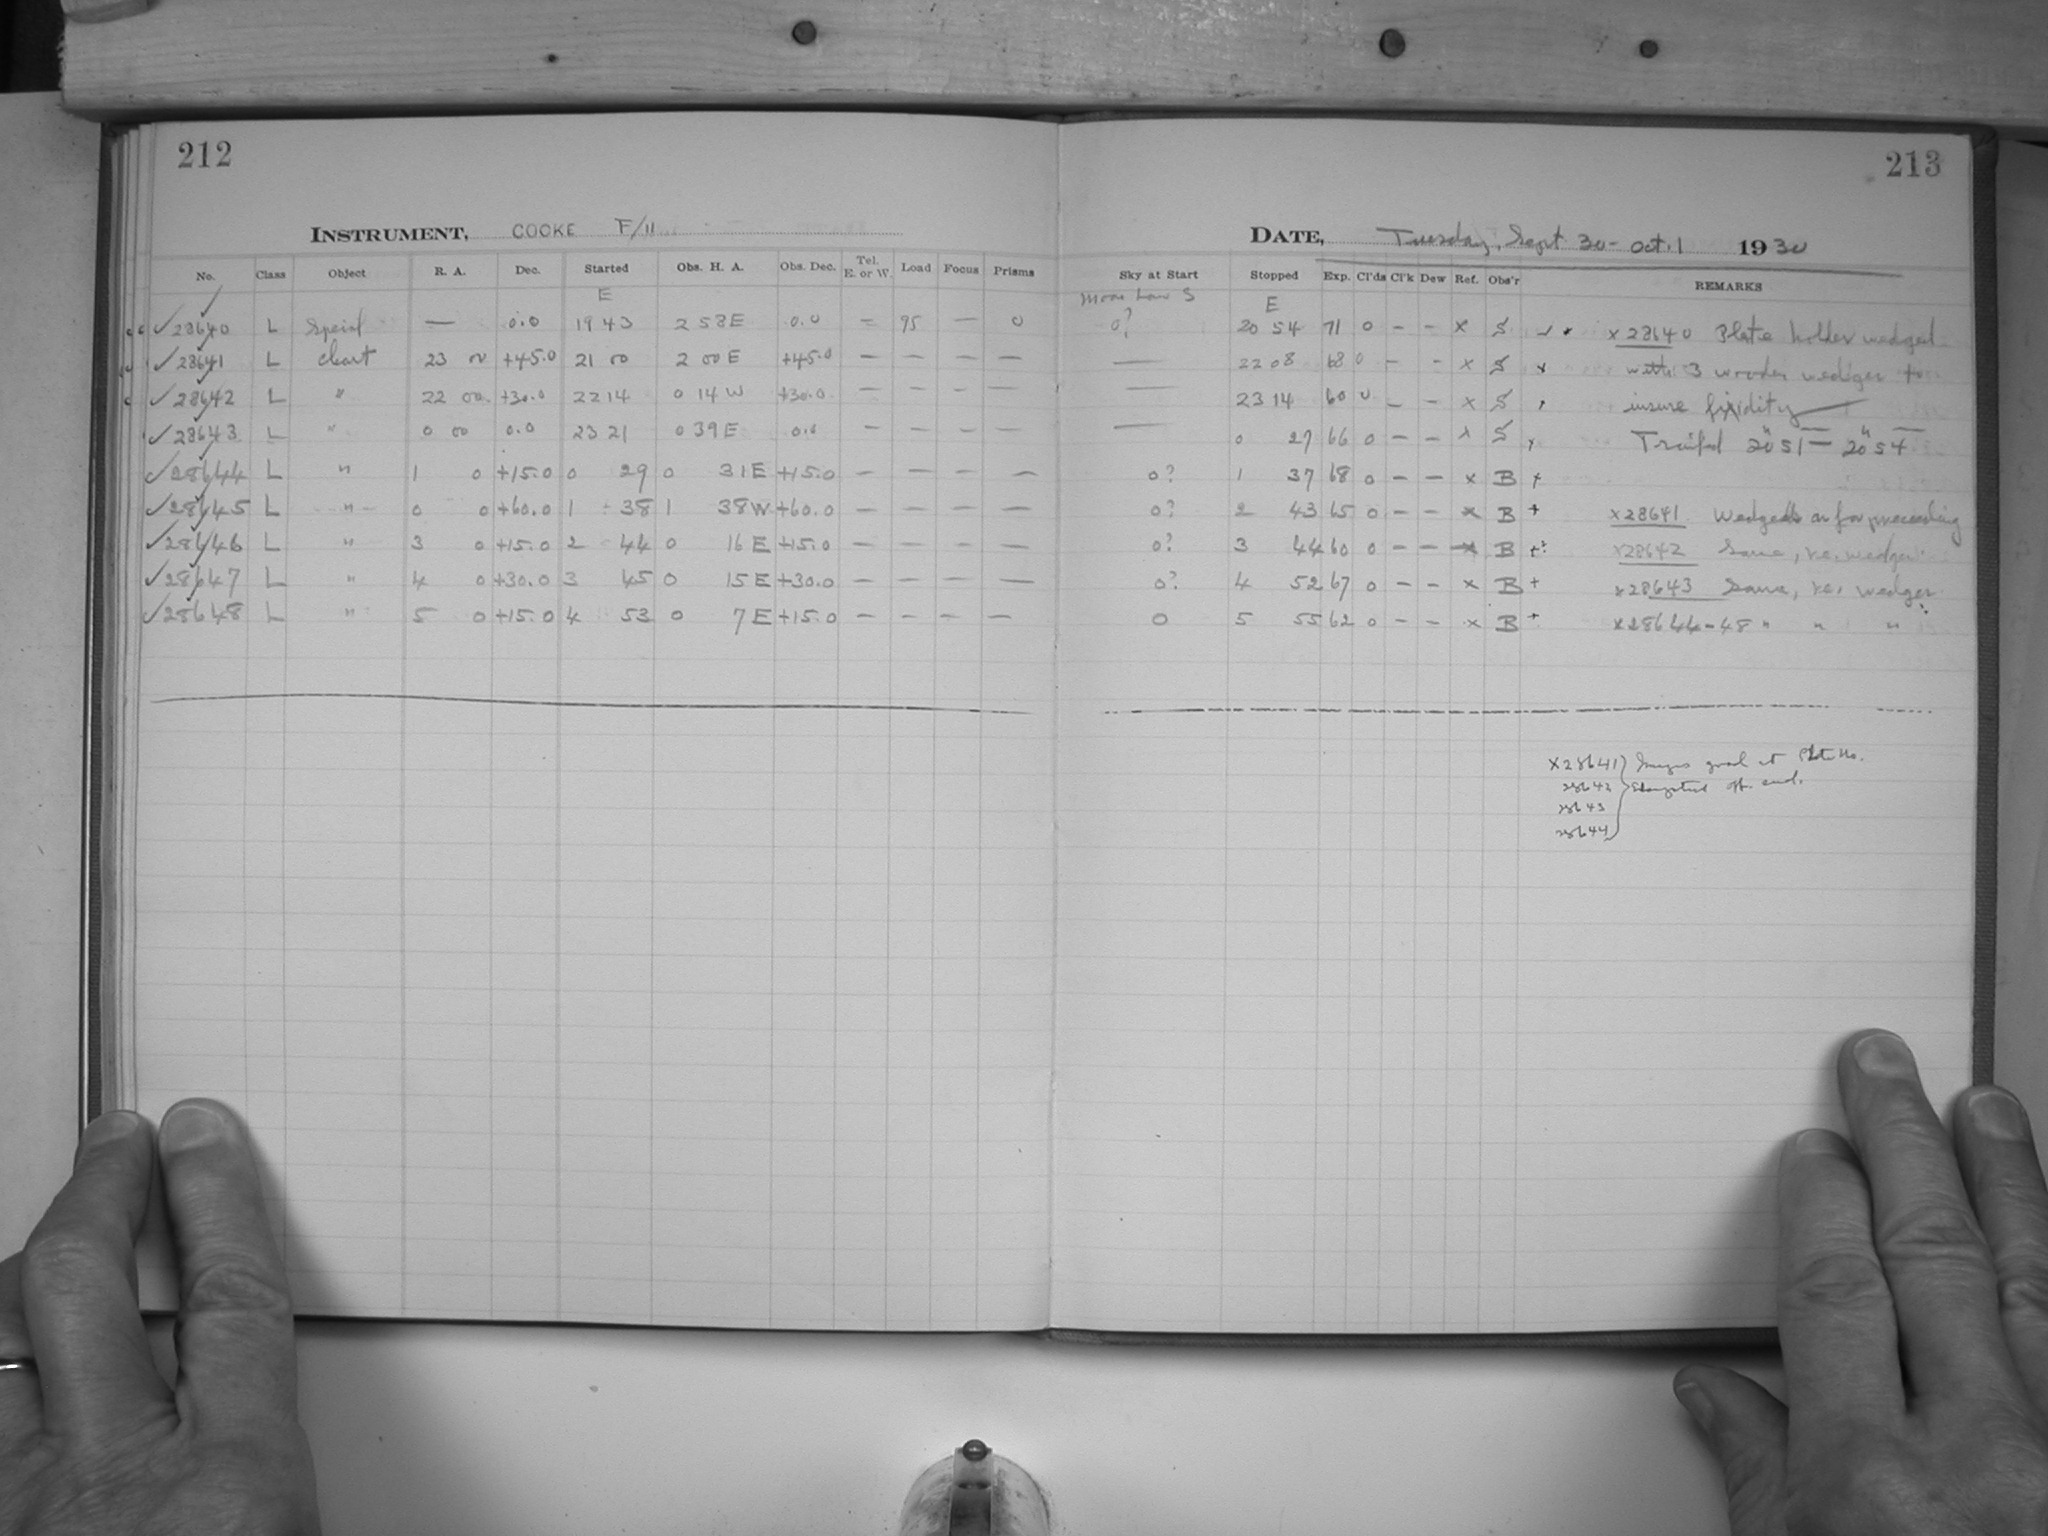 212
213
INSTRUMENT, COOKE F/11
DATE, Tuesday, Sept 30 - Oct. 1 1930
No. Class Object R. A. Dec. Started Obs. H. A. Obs. Dec. Tel. E. or W. Load Focus Prisms Sky at Start Stopped Exp. Cl'ds Cl'k Dew Ref. Obs'r REMARKS
E Moon Low S E
✓28640 L Special — 0.0 19 43 2 58E 0.0 — 95 — 0 0? 20 54 71 0 — — x S x28640 Plate holder wedged
✓28641 L Chart 23 00 +45.0 21 00 2 00 E +45.0 — — — — — 22 08 68 0 — — x S x with 3 wooden wedges to
✓28642 L " 22 00 +30.0 22 14 0 14 W +30.0 — — — — — 23 14 60 0 — — x S insure fixidity
✓28643 L " 0 00 0.0 23 21 0 39E 0.0 — — — — — 0 27 66 0 — — x S Trailed 20h 51 — 20h 54
✓28644 L " 1 0 +15.0 0 29 0 31E +15.0 — — — — 0? 1 37 68 0 — — x B +
✓28645 L " 0 0 +60.0 1 38 1 38W +60.0 — — — — 0? 2 43 65 0 — — x B + x28641 Wedged as for preceeding
✓28646 L " 3 0 +15.0 2 44 0 16 E +15.0 — — — — 0? 3 44 60 0 — — x B +? x28642 Same, re. wedges
✓28647 L " 4 0 +30.0 3 45 0 15 E +30.0 — — — — 0? 4 52 67 0 — — x B + x28643 Same, re. wedges
✓28648 L " 5 0 +15.0 4 53 0 7 E +15.0 — — — — 0 5 55 62 0 — — x B + x28644-48 " " "
x28641 Images good at Plate No.
28642 Elongated opp. end.
28643
28644